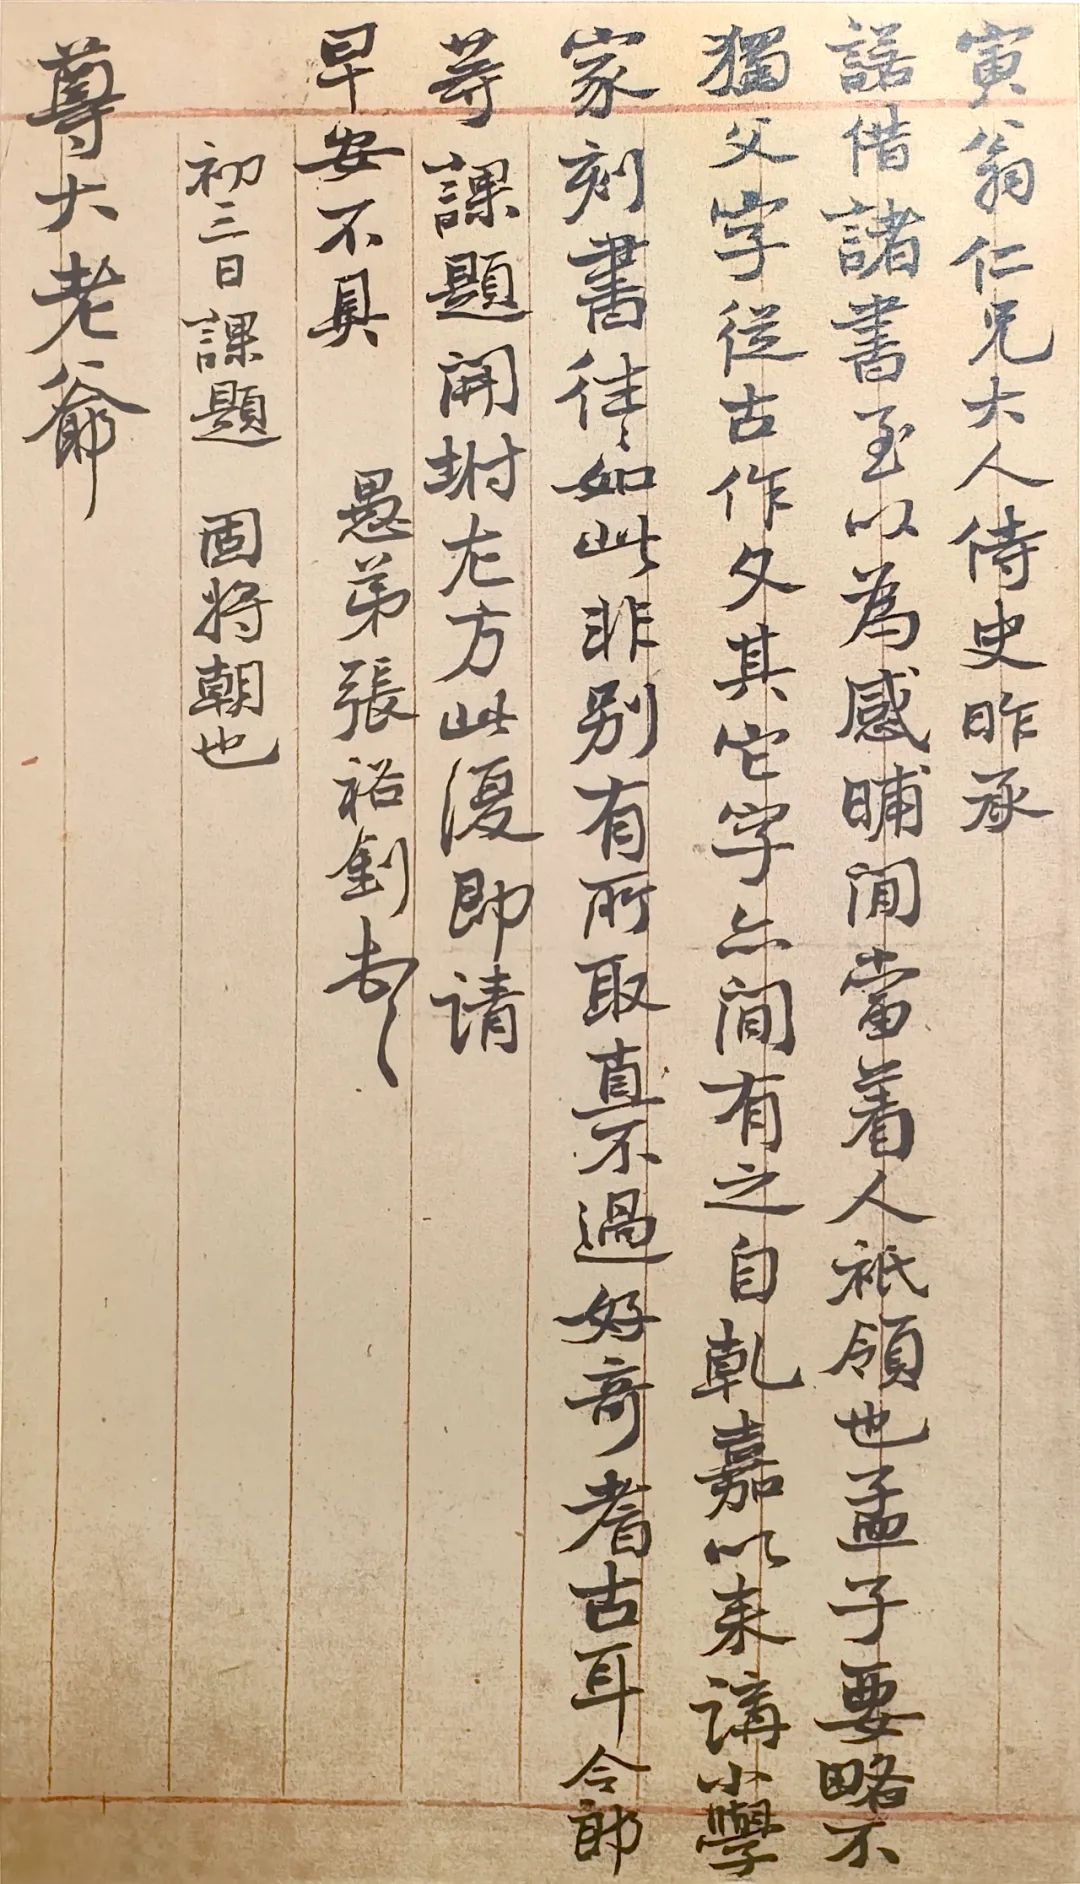 寅翁仁兄大人侍史昨承
諾借諸書至以為感晡間當着人祇領也孟子要略不
獨父字從古作㕛其它字亦間有之自乾嘉以來講小學
家刻書往〻如此非別有所取直不過好奇耆古耳令郎
等課題開坿左方此復即請
早安不具
愚弟張裕釗
初三日課題 固將朝也
尊大老爺